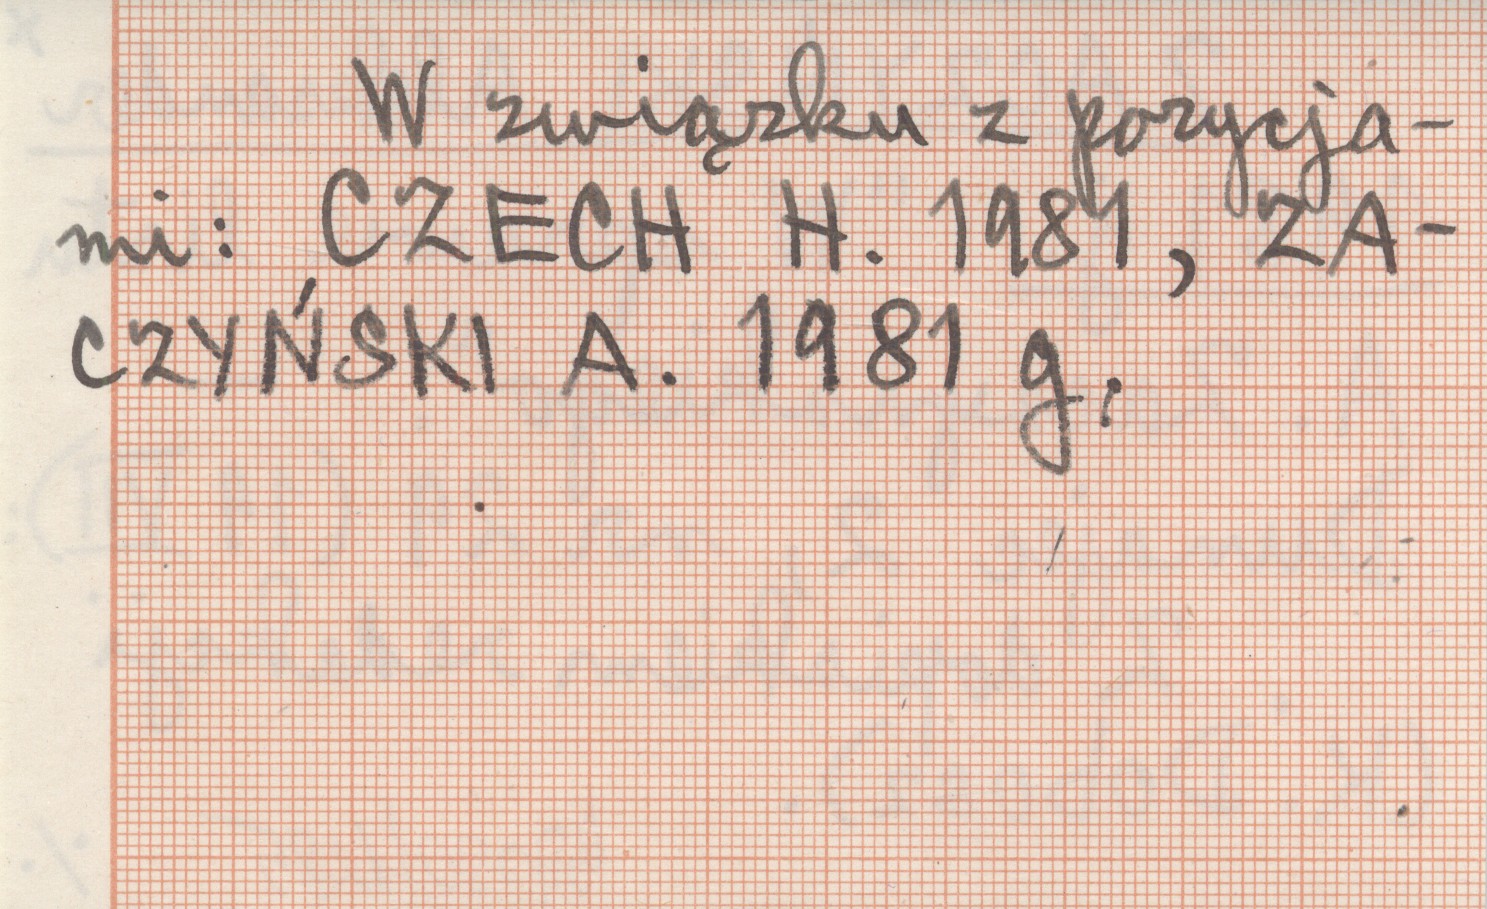 W związku z pozycja-
mi: CZECH H. 1981, ZA-
CZYŃSKI A. 1981 g.